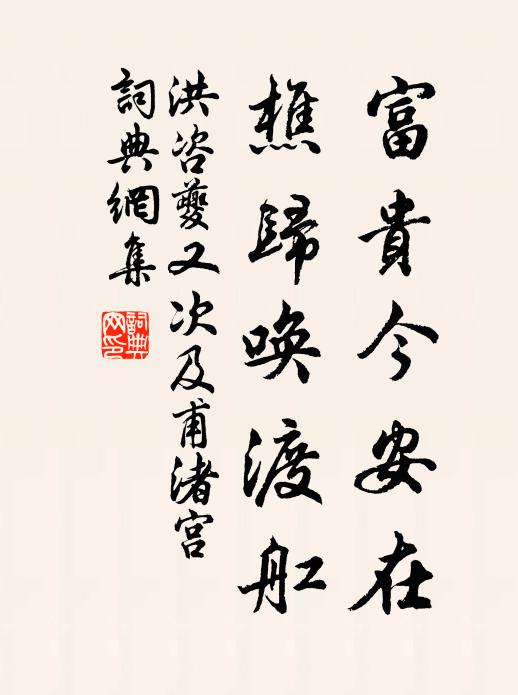 富貴今安在
樵歸喚渡舡
洪咨夔又次及甫渚宫
詞典網集
詞典網印